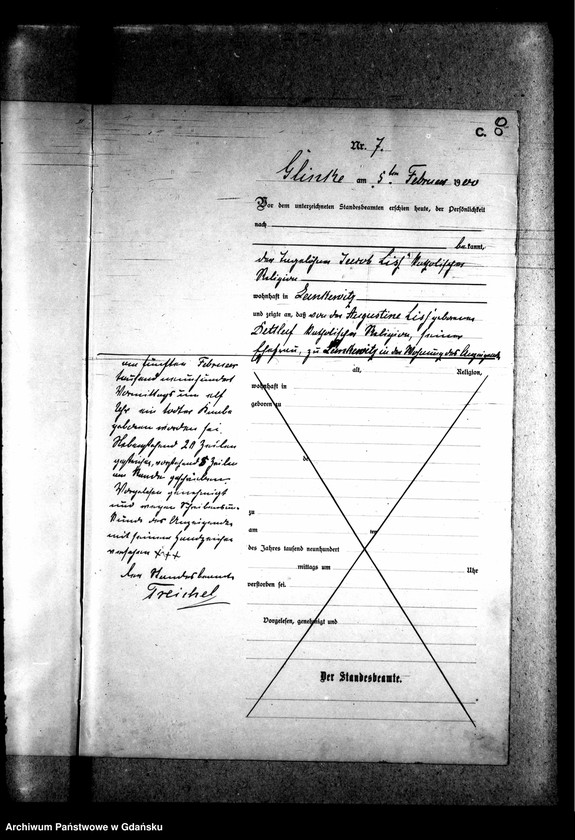 C. 8
Nr. 7.
Glinke am 5ten Februar 1900
Vor dem unterzeichneten Standesbeamten erschien heute, der Persönlichkeit
nach
bekannt,
der Jacob Liss katholischer
Religion
wohnhaft in Lankewitz
und zeigte an, daß von der Augustine Liss geborenen
Detlaff katholischer Religion, seiner
Ehefrau, zu Lankewitz in der Wohnung des Anzeigenden
am fünften Februar
tausend neunhundert
Vormittags um elf
Uhr ein todter Knabe
geboren worden sei.
Nebenstehend 20 Zeilen
gestrichen, vorstehend 5 Zeilen
am Rande geschrieben.
Vorgelesen genehmigt
und wegen
des Anzeigenden
mit seinem Handzeichen
versehen +++
Der Standesbeamte
Treichel
alt, Religion,
wohnhaft in
geboren zu
de
zu
am ten
des Jahres tausend neunhundert
mittags um Uhr
verstorben sei.
Vorgelesen, genehmigt und
Der Standesbeamte.
Archiwum Państwowe w Gdańsku